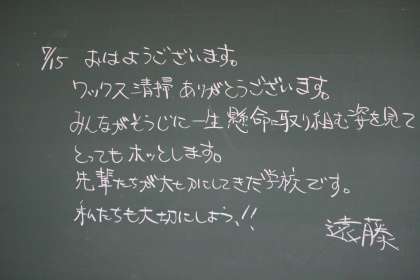 7/15 おはようございます。
ワックス清掃ありがとうございます。
みんながそうじに一生懸命に取り組む姿を見て
とってもホッとします。
先輩たちが大切にしてきた学校です。
私たちも大切にしよう!!
遠藤